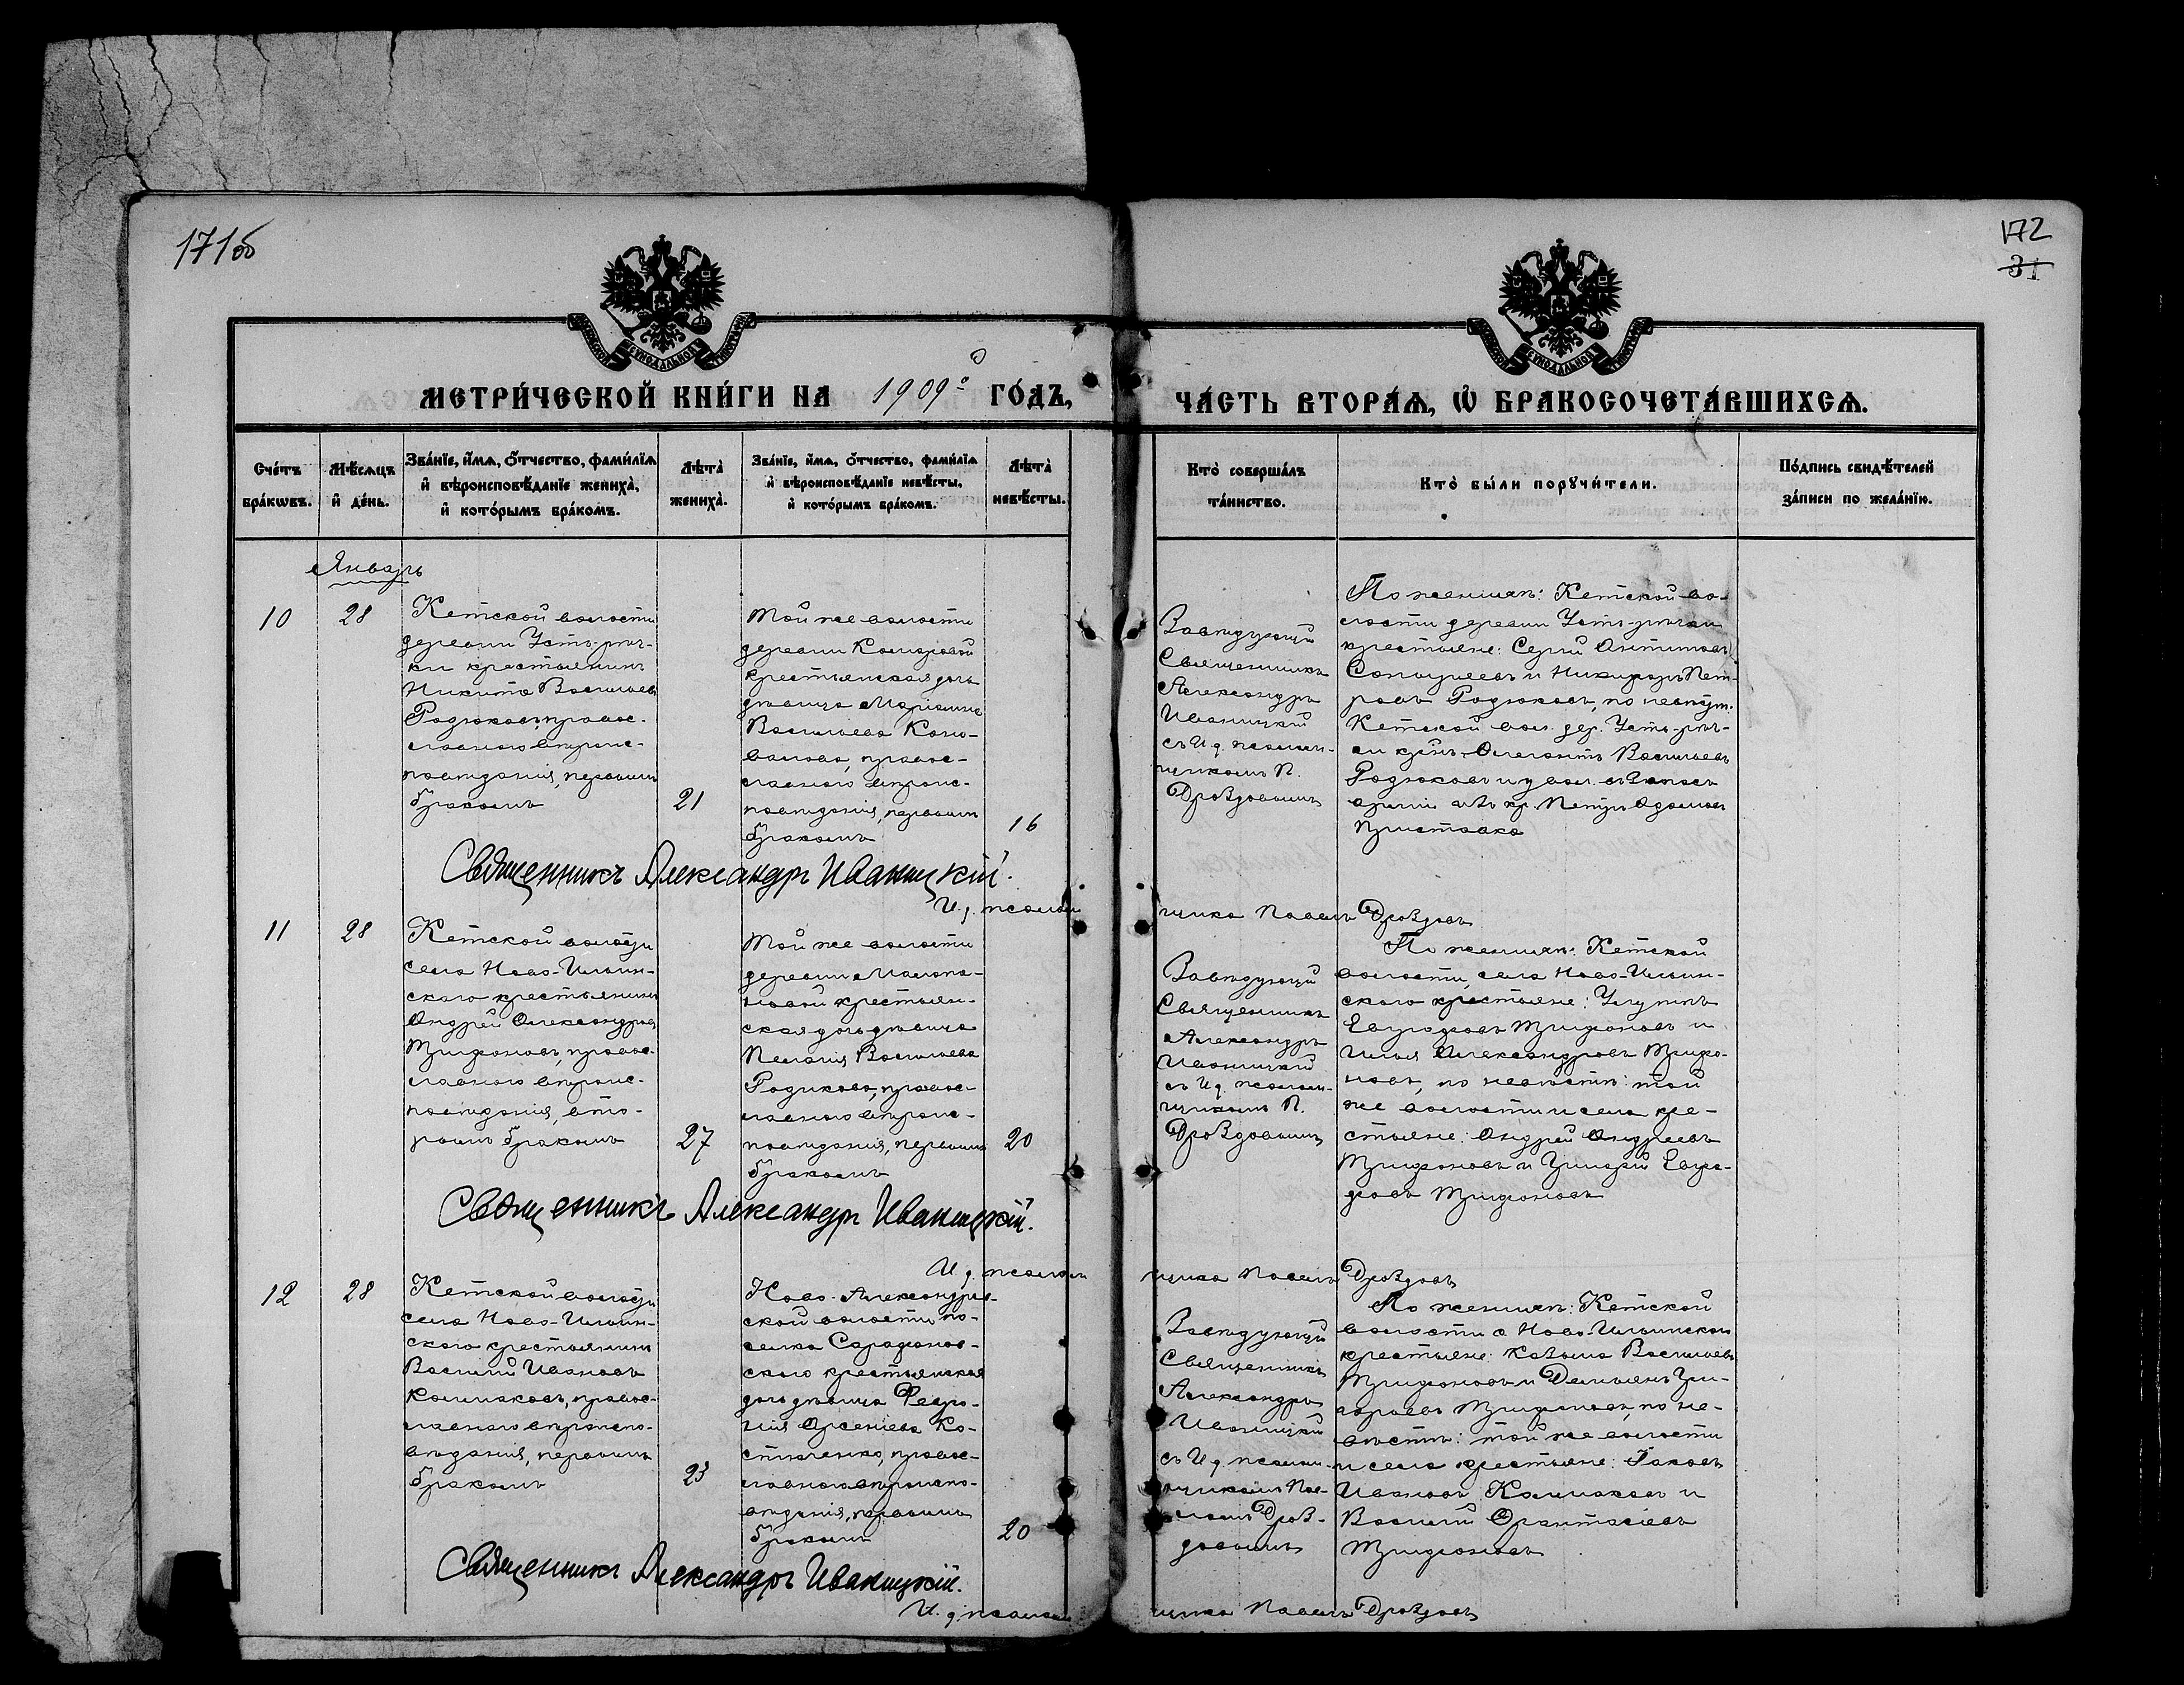 171об
172
31
МЕТРИ́ЧЕСКОЙ КНИ́ГИ НА 1909 го ГО́ДЪ,
ЧА́СТЬ ВТОРА́Ѧ, Ѡ҆ БРАКОСОЧЕТА́ВШИХСѦ.
Сче́тъ бра́кѡвъ.
Мѣ́сѧцъ и҆ де́нь.
Зва́нїе, и҆́мѧ, ѻ҆́тчество, фами́лїѧ
и҆ вѣроисповѣ́данїе жениха̀,
и҆ кото́рымъ бра́комъ.
Лѣ́та жениха̀.
Зва́нїе, и҆́мѧ, ѻ҆́тчество, фами́лїѧ
и҆ вѣроисповѣ́данїе невѣ́сты,
и҆ кото́рымъ бра́комъ.
Лѣ́та невѣ́сты.
Кто̀ соверша́лъ
та́инство.
Кто̀ бы́ли порꙋчи́тели.
По́дпись свидѣ́телей
за́писи по жела́нїю.
Январь
10
28
Кетской волости
деревни Усть-рѣч-
ки крестьянинъ
Никита Васильевъ
Радюковъ, правос-
лавнаго вѣроис-
повѣданія, первымъ
бракомъ
21
Той же волости
деревни
крестьянская дочь
дѣвица Маріанна
Васильева Коно-
валова, правос-
лавнаго вѣроис-
повѣданія, первымъ
бракомъ
16
Завѣдующій
Священникъ
Александръ
Иваницкій
съ И. д. псалом-
щикомъ П.
Дроздовымъ
По женихѣ: Кетской во-
лости деревни Усть-рѣчки
крестьяне: Сергій Антиповъ
и Никифоръ Пет-
ровъ Радюковъ, по невѣстѣ:
Кетской вол. дер. Усть-рѣч-
ки кр-нъ Васильевъ
Радюковъ и увол. въ запасъ
арміи кр. Петръ Адамовъ
Приставка
Священникъ Александръ Иваницкій.
И. д. псаломщика Павелъ Дроздовъ
11
28
Кетской волости
села Ново-Ильин-
скаго крестьянинъ
Андрей Александровъ
Трифоновъ, правос-
лавнаго вѣроис-
повѣданія, вто-
рымъ бракомъ
27
Той же волости
деревни
крестьян-
ская дочь дѣвица
Пелагія Васильева
Радикова, правос-
лавнаго вѣроис-
повѣданія, первымъ
бракомъ
20
Завѣдующій
Священникъ
Александръ
Иваницкій
съ И. д. псалом-
щикомъ П.
Дроздовымъ
По женихѣ: Кетской
волости, села Ново-Ильин-
скаго крестьяне:
Евграфовъ Трифоновъ и
Илья Александровъ Трифо-
новъ, по невѣстѣ: той
же волости и села кре-
стьяне: Андрей Андреевъ
Трифоновъ и Григорій Евгра-
фовъ Трифоновъ
Священникъ Александръ Иваницкій.
И. д. псаломщика Павелъ Дроздовъ
12
28
Кетской волости
села Ново-Ильин-
скаго крестьянинъ
Василій Ивановъ
Колмаковъ, правос-
лавнаго вѣроиспо-
вѣданія, первымъ
бракомъ
23
Ново-Александров-
ской волости по-
селка Сарафанов-
скаго крестьянская
дочь дѣвица Февро-
нія Арсеніева Ко-
стюченко, правос-
лавнаго вѣроиспо-
вѣданія, первымъ
бракомъ
20
Завѣдующій
Священникъ
Александръ
Иваницкій
съ И. д. псалом-
щикомъ Пав-
ломъ Дроз-
довымъ
По женихѣ: Кетской
волости с. Ново-Ильинскаго
крестьяне: Козьма Васильевъ
Трифоновъ и Демьянъ Гри-
горьевъ Трифоновъ, по не-
вѣстѣ: той же волости
и села крестьяне: Іаковъ
Ивановъ Колмаковъ и
Василій
Трифоновъ
Священникъ Александръ Иваницкій.
И. д. псаломщика Павелъ Дроздовъ